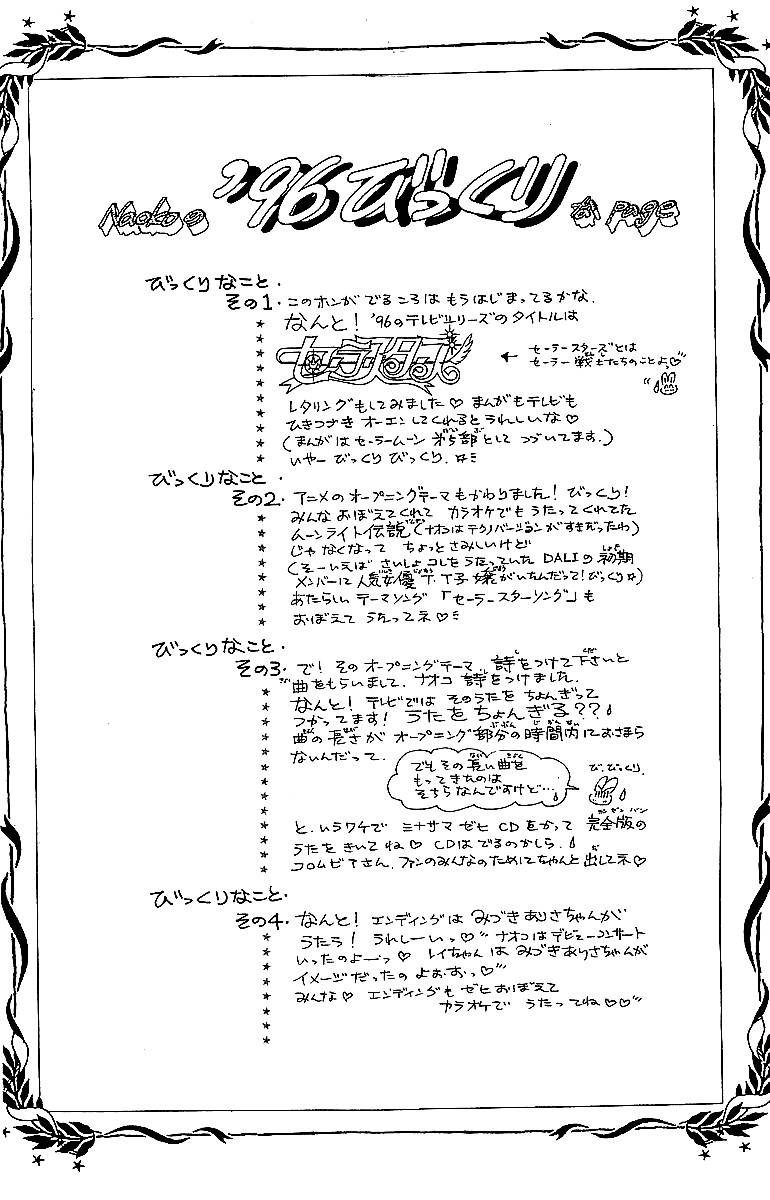 Naokoの '96びっくりな page
びっくりなこと.
その1. このホンが でるころは もうはじまってるかな.
なんと! '96のテレビシリーズのタイトルは
セーラースターズ
← セーラースターズとは
セーラー戦士たちのことよっ♡
レタリングもしてみました♡ まんがもテレビも
ひきつづき オーエンしてくれると うれしいな♡
(まんがは セーラームーン 第5部として つづいてます.)
いやー びっくり びっくり. ☆ミ
びっくりなこと.
その2. アニメのオープニングテーマもかわりました! びっくり!
みんな おぼえてくれて カラオケでも うたってくれてた
ムーンライト伝説(ナオコはテクノバージョンがすきだったわ)
じゃ なくなって ちょっと さみしいけど
(そーいえば さいしょ コレをうたっていた DALIの 初期
メンバーに 人気女優 T.T子嬢がいたんだって! びっくり☆)
あたらしい テーマソング 「セーラースターソング」も
おぼえて うたってネ♡ミ
びっくりなこと.
その3. で! その オープニングテーマ, 詩をつけて下さいと
曲をもらいまして, ナオコ 詩をつけました.
なんと! テレビでは そのうたを ちょんぎって
つかってます! うたを ちょんぎる??
曲の長さが オープニング部分の時間内におさまら
ないんだって.
でもその長い曲を
もってきたのは
そちらなんですけど…
び、びっくり.
と、いうワケで ミナサマ ゼヒ CDをかって 完全版の
うたを きいてね♡ CDは でるのかしら.
コロムビアさん. ファンのみんなのためにちゃんと出してネ♡
びっくりなこと.
その4. なんと! エンディングは みづきありさちゃんが
うたう! うれしーいっ♡ ナオコはデビューコンサート
いったのよーっ♡ レイちゃんは みづきありさちゃんが
イメージだったの よぉぉっ♡
みんな♡ エンディングも ゼヒ おぼえて
カラオケで うたってね♡♡